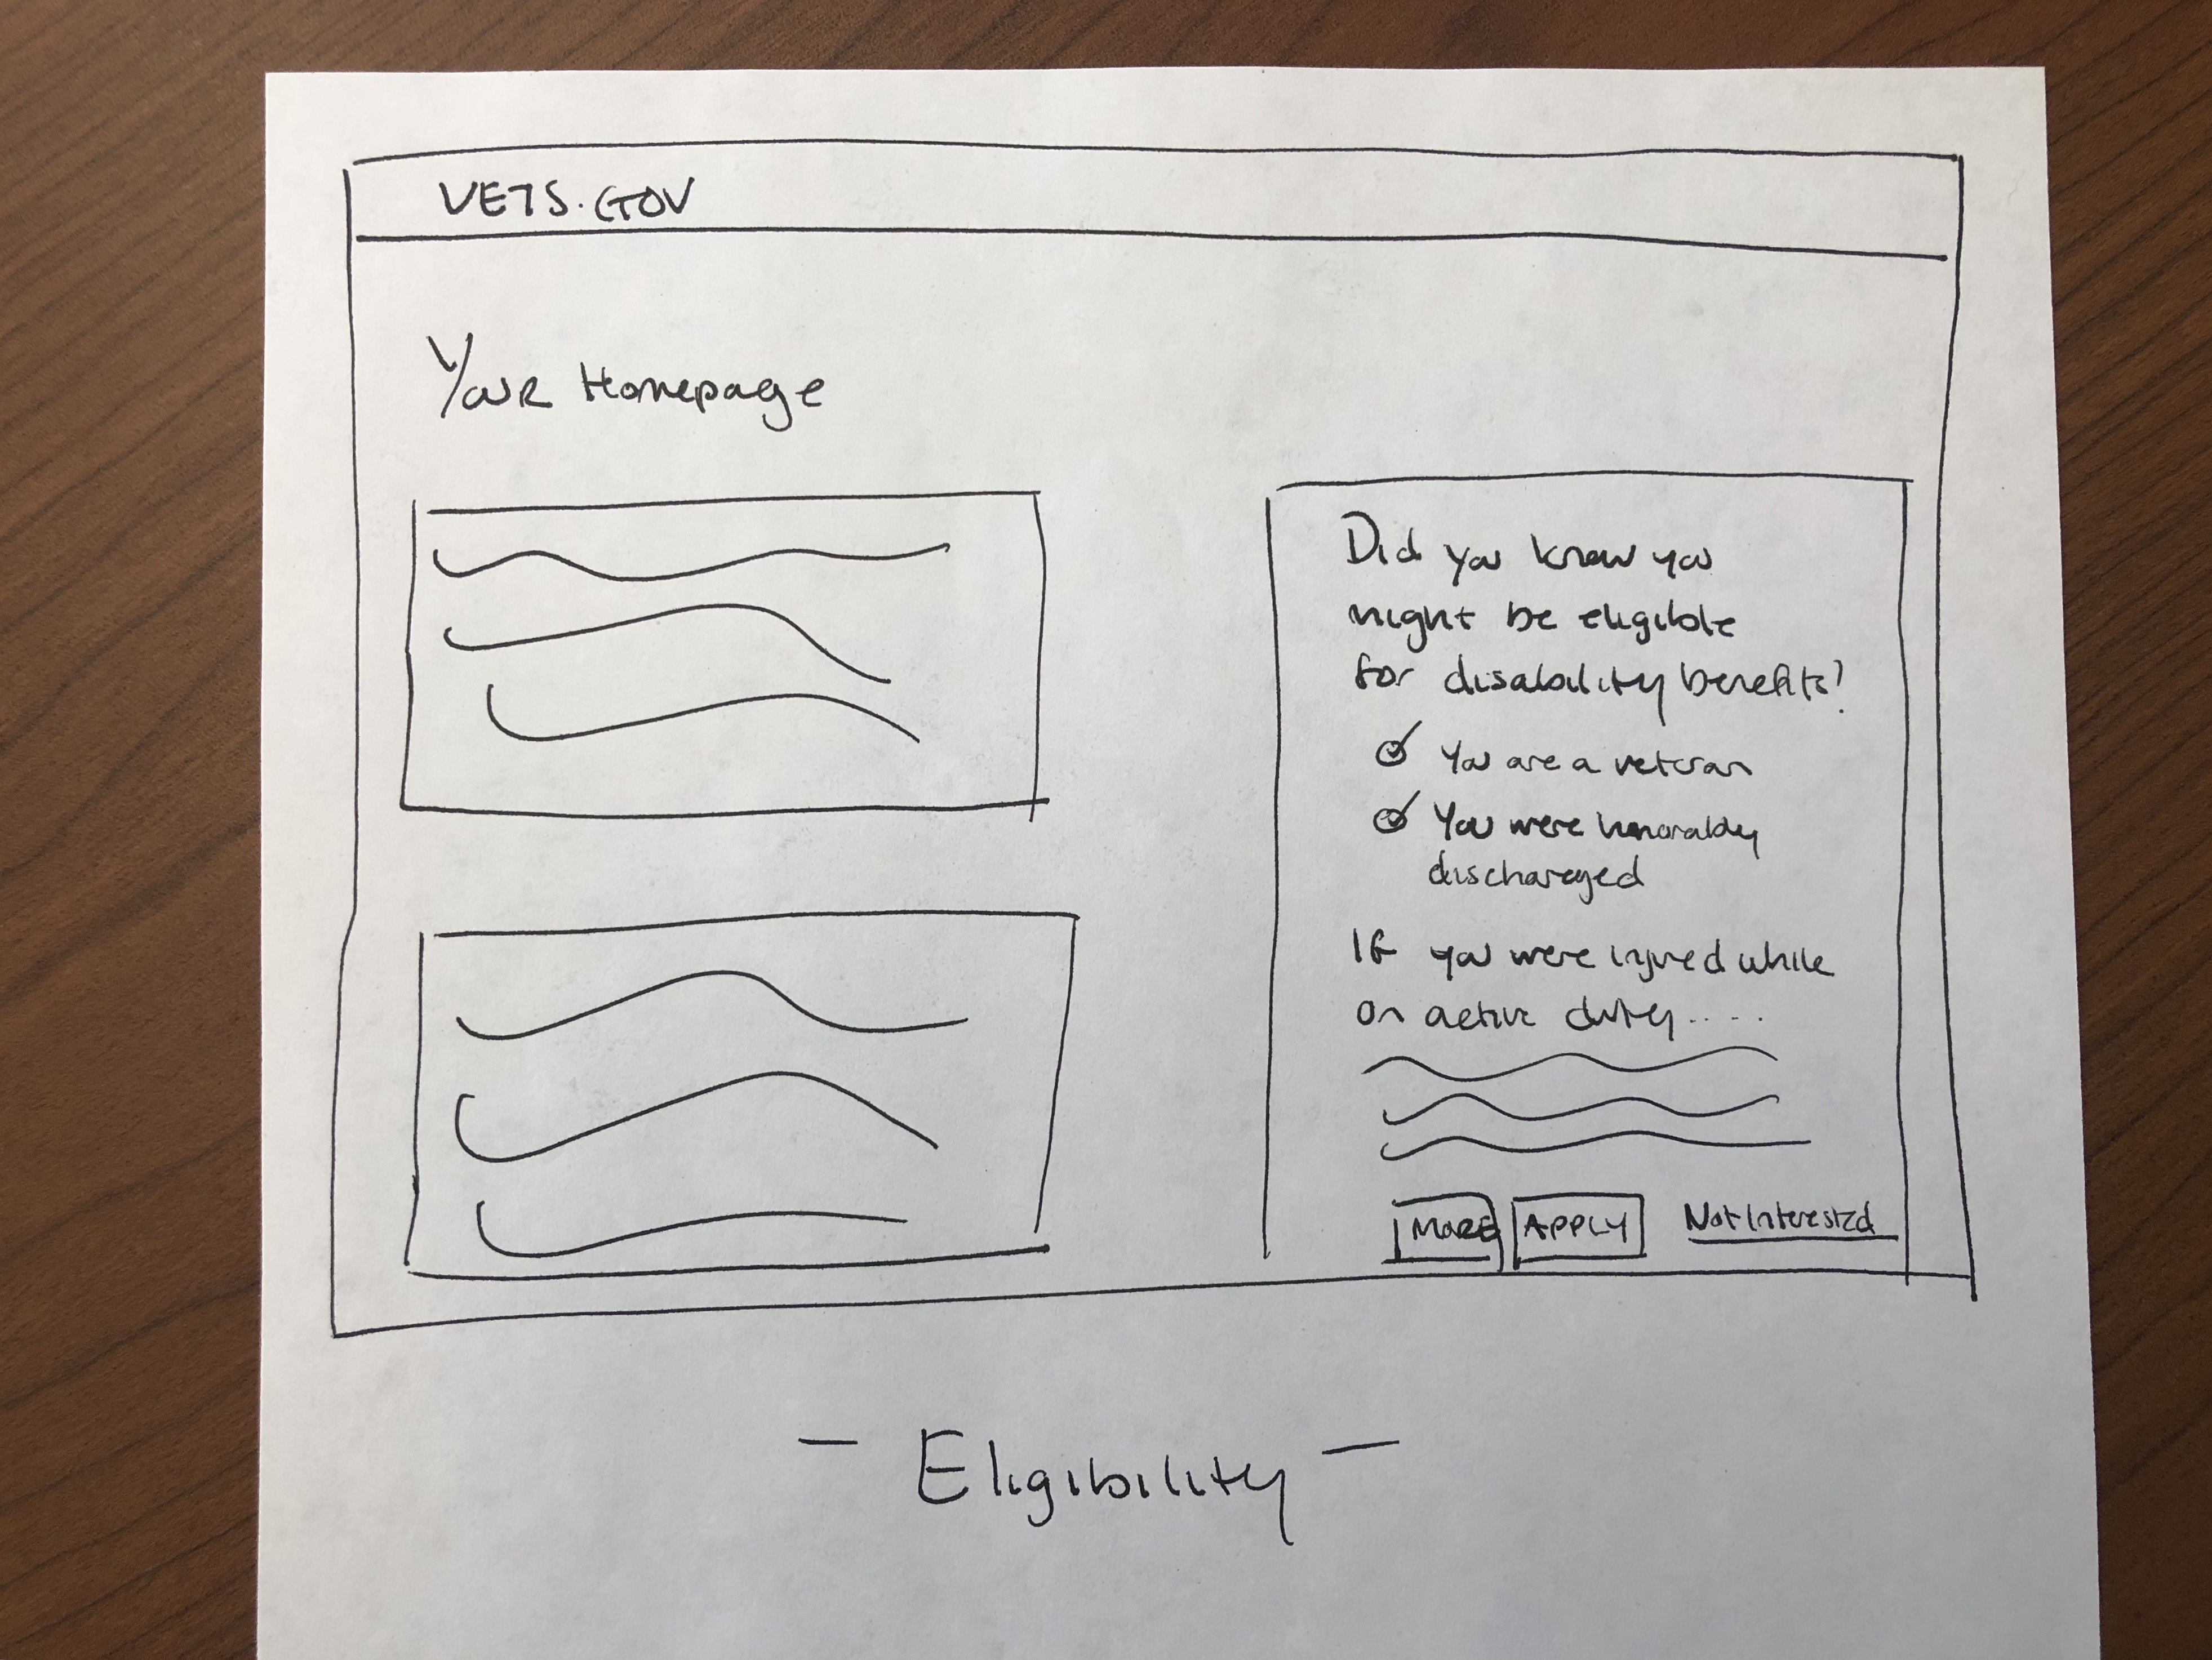 VETS.GOV
Your Homepage
Did you know you
might be eligible
for disability benefits?
You are a veteran
You were honorably
discharged
If you were injured while
on active duty....
MORE APPLY Not Interested
- Eligibility -